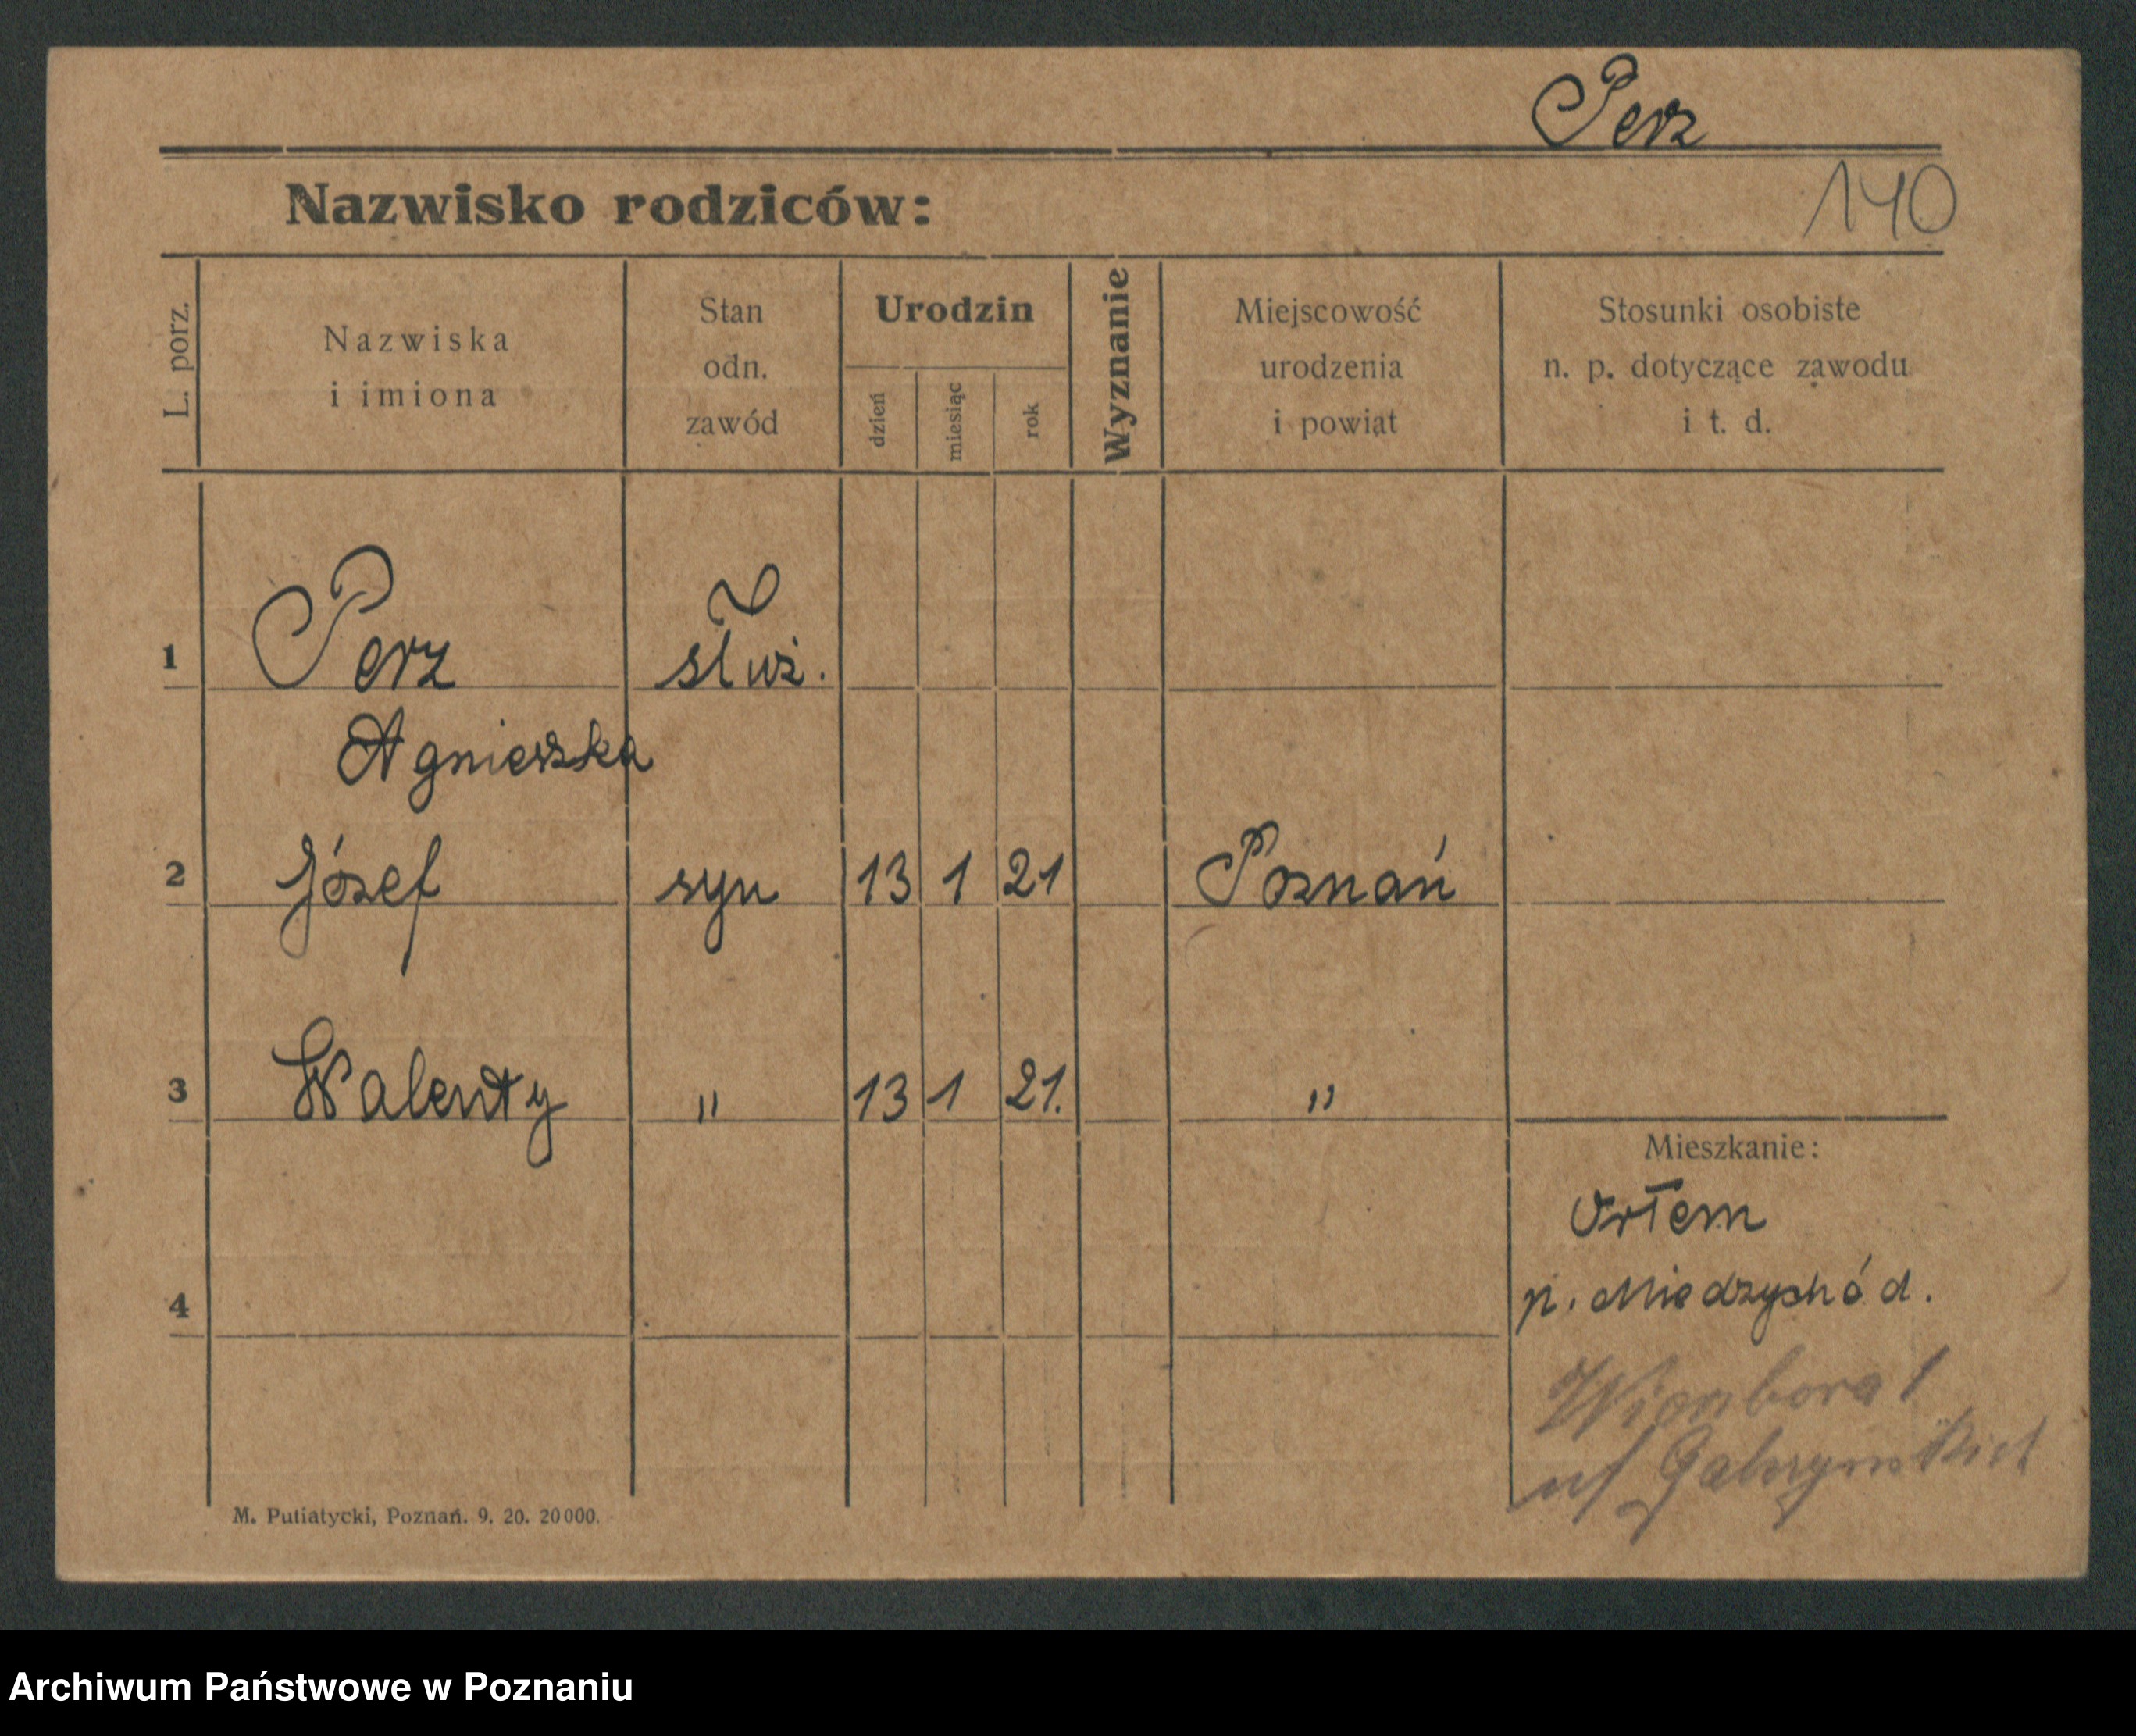 Perz
Nazwisko rodziców:
140
L. porz.
Nazwiska
i imiona
Stan
odn.
zawód
Urodzin
dzień
miesiąc
rok
Wyznanie
Miejscowość
urodzenia
i powiat
Stosunki osobiste
n. p. dotyczące zawodu
i t. d.
1 Perz służ.
Agnieszka
2 Józef syn 13 1 21 Poznań
3 Walenty " 13 1 21. "
Mieszkanie:
p. Miedzychód.
4
M. Putiatycki, Poznań. 9. 20. 20000.
Archiwum Państwowe w Poznaniu